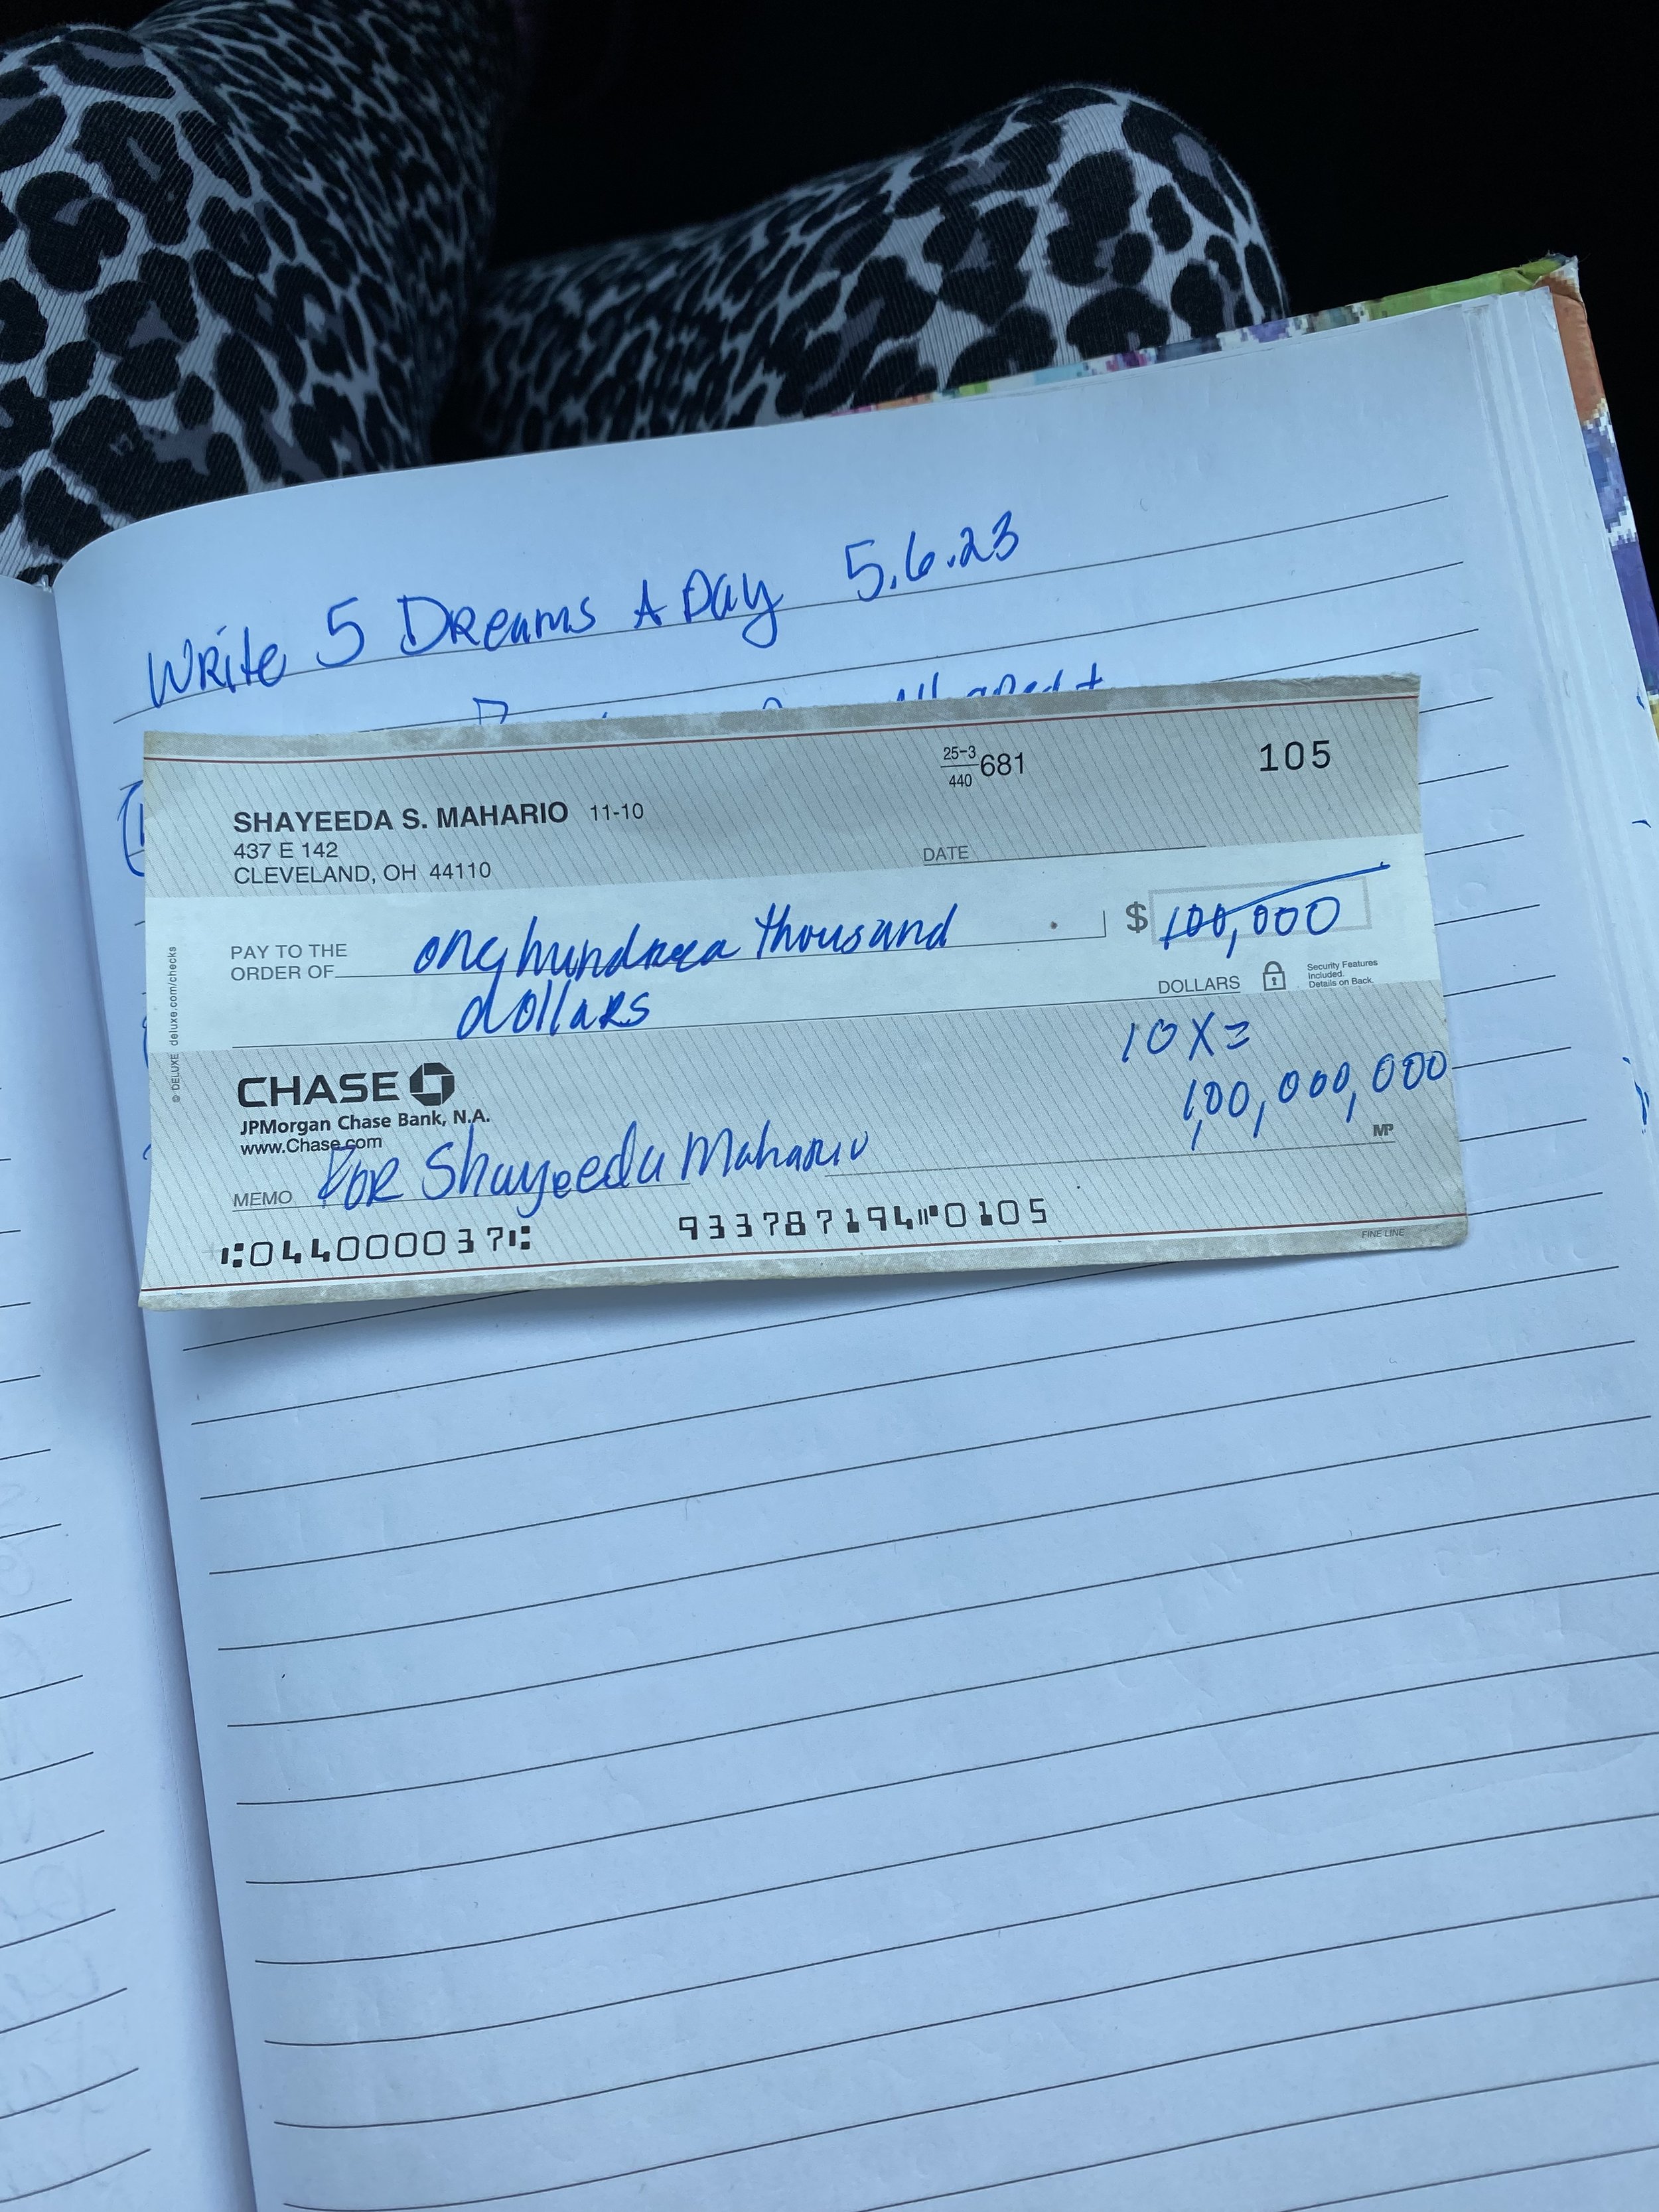 Write 5 Dreams A Day 5.6.23
25-3
440
681
105
SHAYEEDA S. MAHARIO 11-10
437 E 142
CLEVELAND, OH 44110
DATE
PAY TO THE
ORDER OF
one hundred thousand
$ 100,000
dollars
DOLLARS
Security Features
Included.
Details on Back.
© DELUXE deluxe.com/checks
10 X =
100,000,000
CHASE
JPMorgan Chase Bank, N.A.
www.Chase.com
MEMO For Shayeeda Mahario
MP
⑆044000037⑆ 933787194⑈0105
FINE LINE